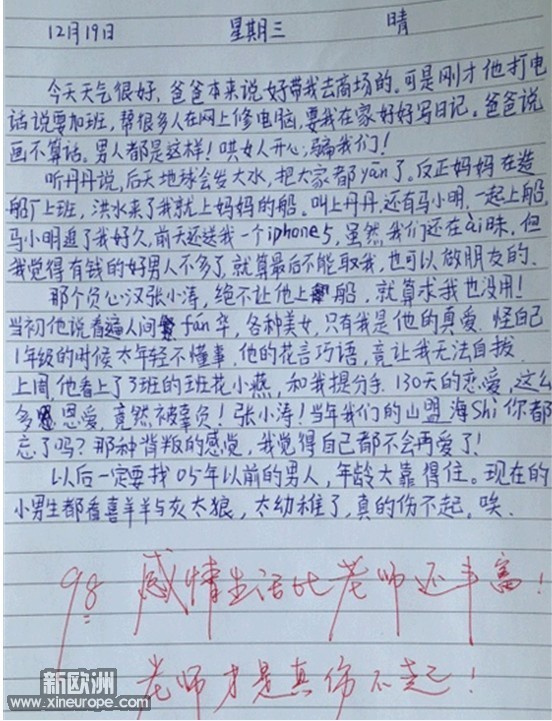 12月19日 星期三 晴
今天天气很好，爸爸本来说好带我去商场的。可是刚才他打电
话说要加班，帮很多人在网上修电脑，要我在家好好写日记。爸爸说
画不算话。男人都是这样！哄女人开心，骗我们！
听丹丹说，后天地球会发大水，把大家都yān了。反正妈妈在造
船厂上班，洪水来了我就上妈妈的船。叫上丹丹，还有马小明，一起上船，
马小明追了我好久，前天还送我一个iphone5，虽然我们还在ài昧，但
我觉得有钱的好男人不多了，就算最后不能取我，也可以做朋友的。
那个负心汉张小涛，绝不让他上船，就算求我也没用！
当初他说看遍人间fán华，各种美女，只有我是他的真爱．怪自己
1年级的时候太年轻不懂事，他的花言巧语，竟让我无法自拔．
上周，他看上了3班的班花小燕，和我提分手．130天的恋爱，这么
多恩爱，竟然被辜负！张小涛！当年我们的山盟海Shi你都
忘了吗？那种背叛的感觉，我觉得自己都不会再爱了！
以后一定要找05年以前的男人，年龄大靠得住。现在的
小男生都看喜羊羊与灰太狼，太幼稚了，真的伤不起，唉．
98 感情生活比老师还丰富！
老师才是真伤不起！
新欧洲
www.xineurope.com